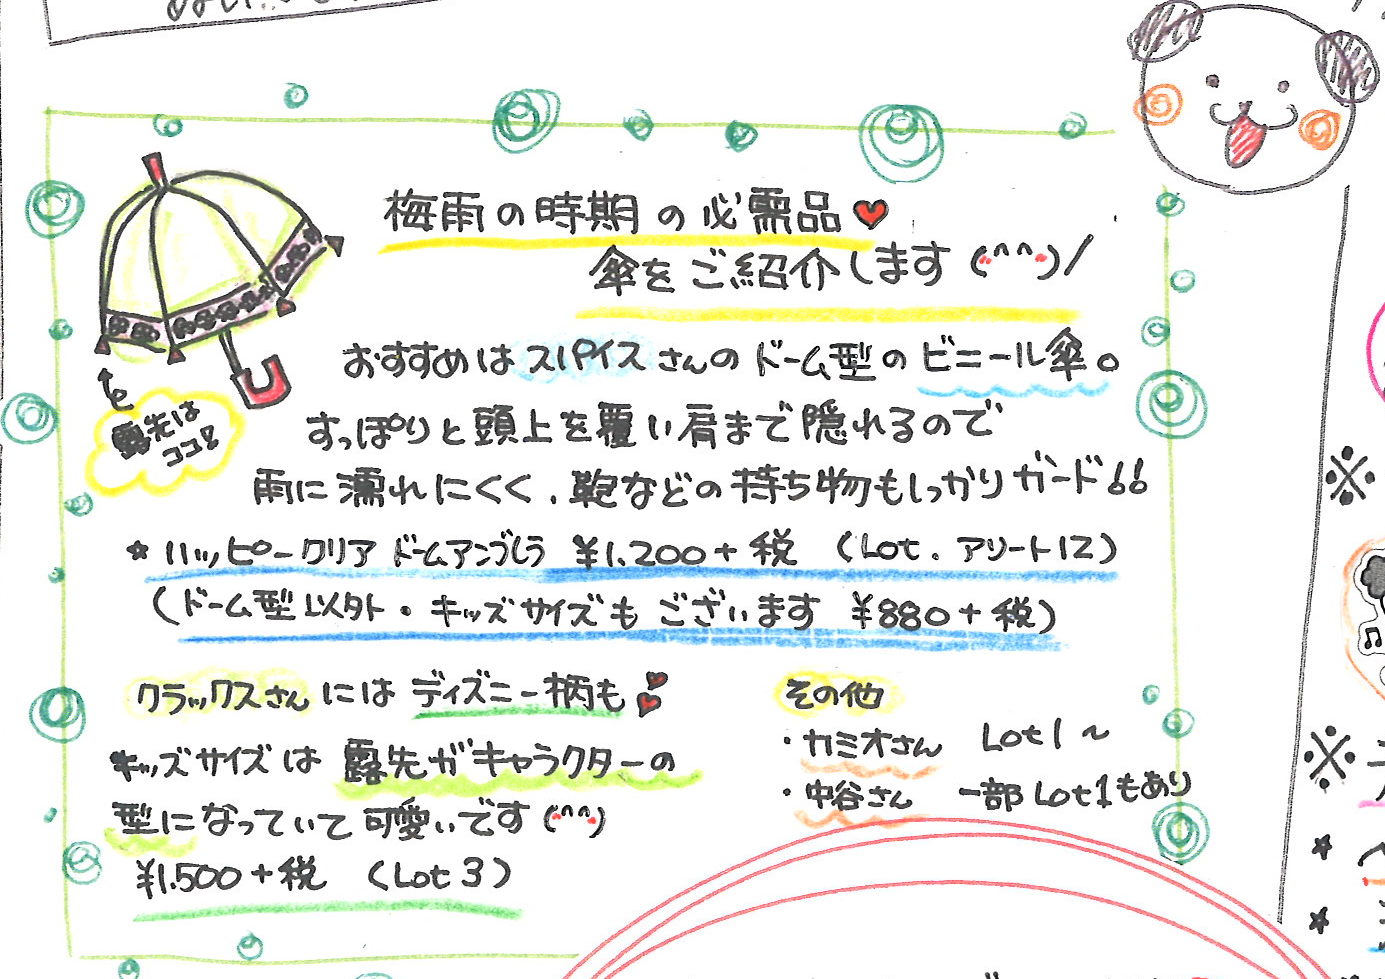 梅雨の時期の必需品
傘をご紹介します(^^)/
おすすめはスパイスさんのドーム型のビニール傘。
すっぽりと頭上を覆い肩まで隠れるので
雨に濡れにくく、鞄などの持ち物もしっかりガード!!
露先は
ココ!!
☆ハッピークリアドームアンブレラ ¥1,200+税 (Lot.アソート12)
(ドーム型以外・キッズサイズもございます ¥880+税)
クラックスさんにはディズニー柄も
キッズサイズは露先がキャラクターの
型になっていて可愛いです(^^)
¥1,500+税 (Lot 3)
その他
・カミオさん Lot1~
・中谷さん 一部Lot1もあり
※
※
☆
☆